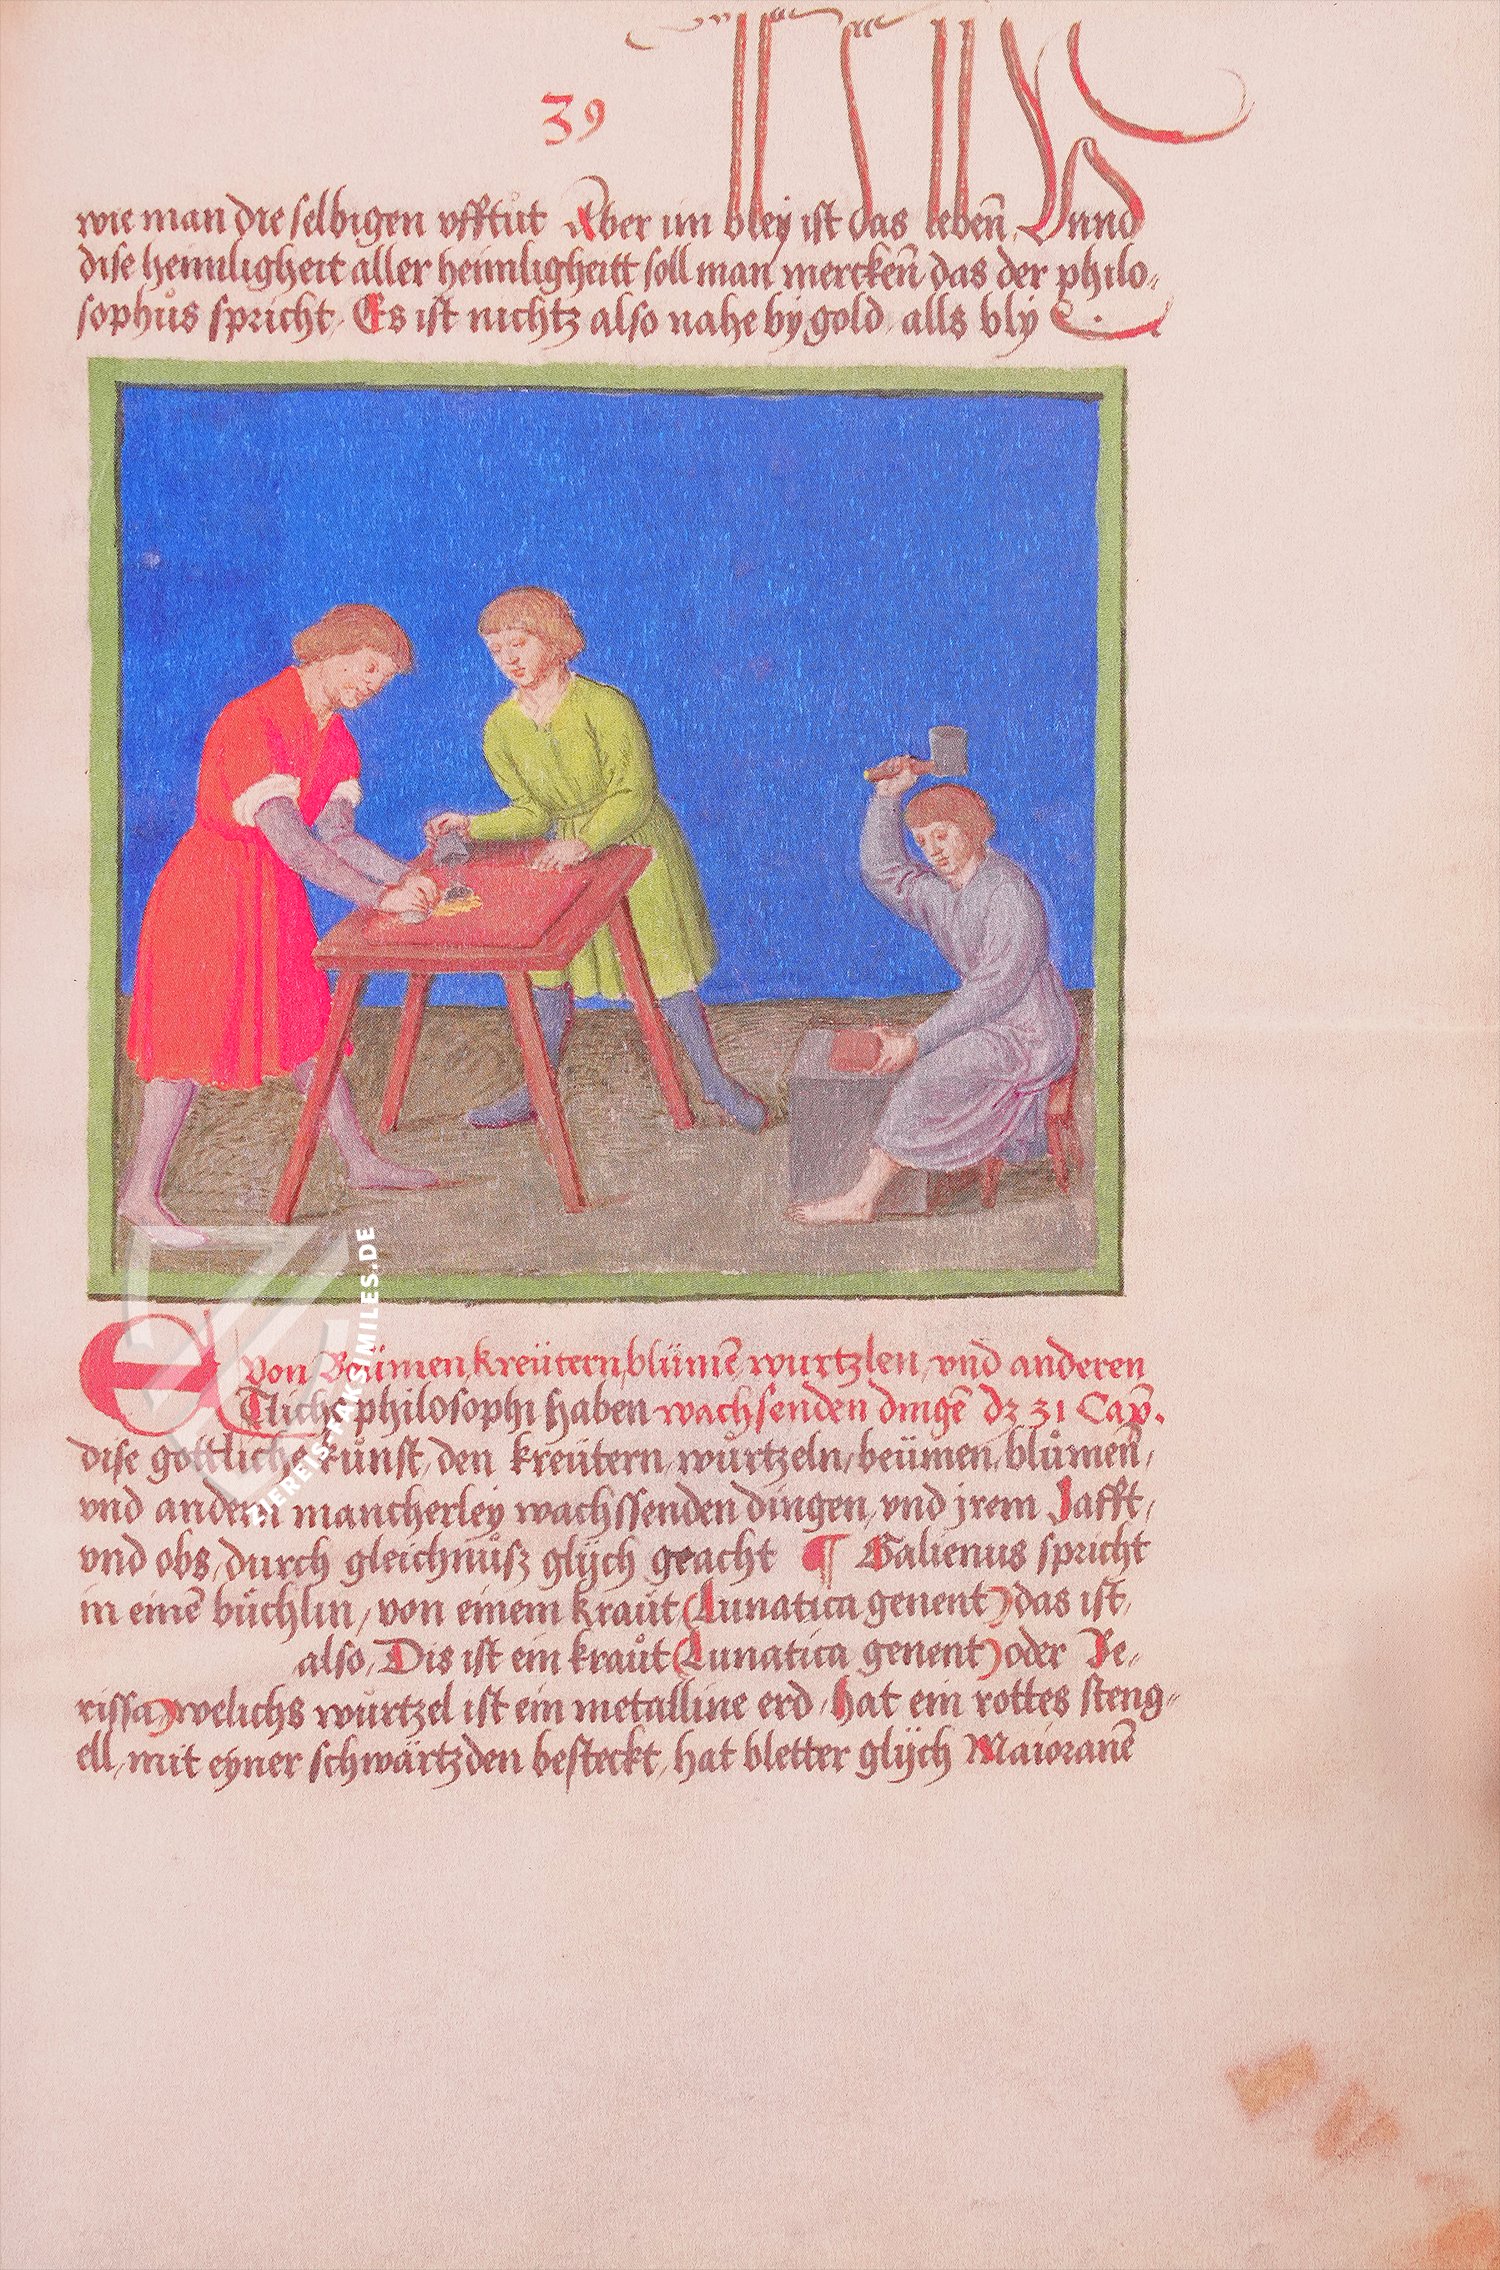 39
wie man die selbigen vfftůt Aber im bley ist das lebeñ, Vnnd
dise heimligheit aller heimligheitt soll man merckeñ das der philo-
sophůs spricht, Es ist nichtz also nahe by gold, alls bly
Von Beümen, kreütern, blümē wurtzlen, vnd anderen
ETliche philosophi haben wachsenden dingē dz 31 Cap̄.
dise gottliche kůnst, den kreütern, wůrtzeln, beümen, blůmeñ,
vnd andern mancherley wachssenden dingen, vnd jrem safft,
vnd obs, durch gleichnůsz glÿch geacht ¶ Galienus spricht
in einē bůchlin, von einem kraůt (Lunatica genent) das ist,
also, Dis ist ein kraůt (Lunatica genent) oder Be-
rissa) welichs wůrtzel ist ein metalline erd, hat ein rottes steng-
ell, mit eyner schwärtzden besteckt, hat bletter glÿch Maioranē
ZIEREIS-FAKSIMILES.DE